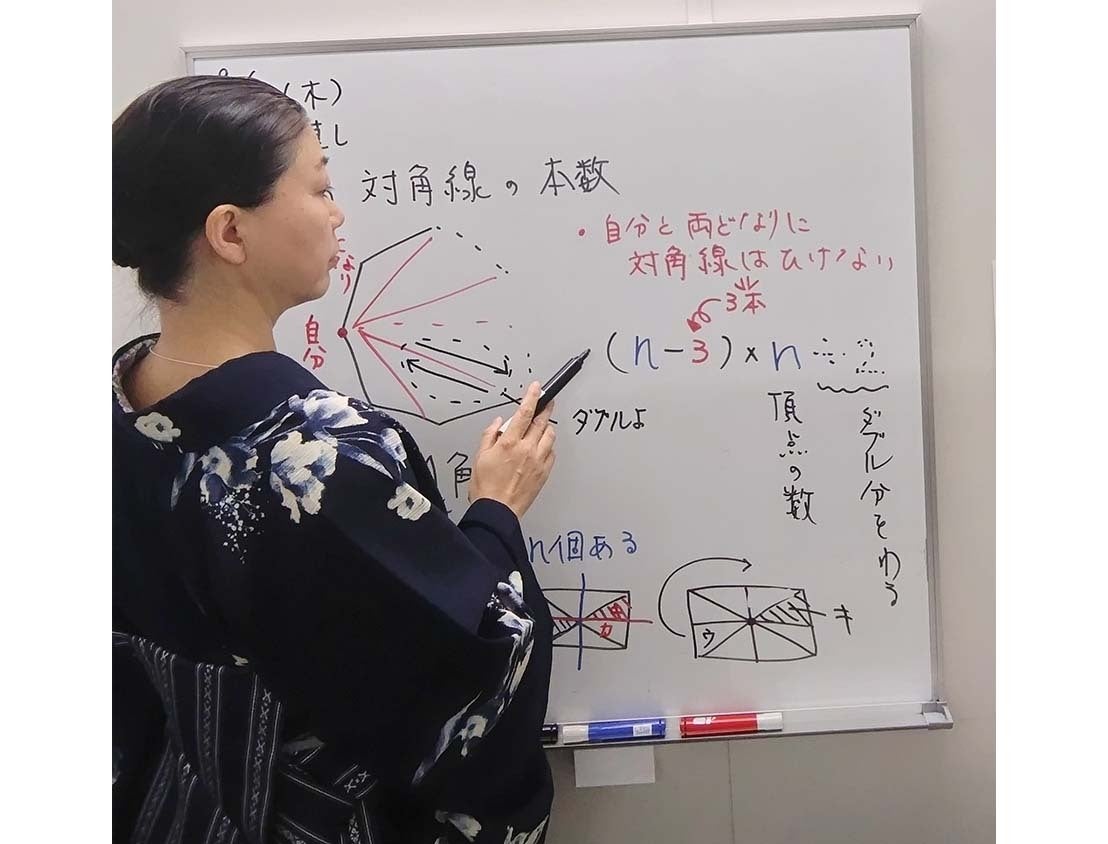 (木)
直し
対角線の本数
・自分と両どなりに
対角線はひけない
3本
自分
(n-3)×n
ダブルよ
頂点の数
ダブル分をわる
角
n個ある
カ
ウ
キ